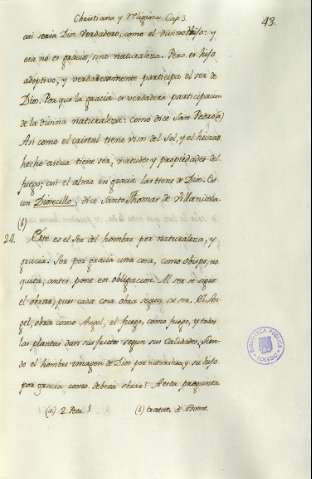 Christiana y Mistica Cap. 3
43.
casi seria Dios verdadero, como el divino Hijo: y
eso no es gracia, sino naturaleza. Pero es hijo
adoptivo, y verdaderamente participa el ser de
Dios. Porque la gracia es verdadera participacion
de la divina naturaleza: como dice San Pedro (a)
Asi como el cristal tiene visos del Sol, y el hierro
hecho ascua tiene luz, y propiedades del
fuego; asi el alma en gracia las tiene de Dios. Es
un Diosecillo, dice Santo Thomas de Villanueva.
(b)
24. Este es el Ser del hombre por naturaleza, y
gracia. Ser por gracia una cosa, como obispo, no
quita, antes pone en obligacion. Al ser se sigue
el obrar, pues cada cosa obra segun su ser. El An-
gel, obra como Angel, el fuego, como fuego, y todas
las plantas dan sus frutos segun sus calidades. Sien-
do el hombre imagen de Dios por naturaleza, y su hijo
por gracia como deberá obrar? A esta pregunta
(a) 2. Petr. 1 (b)
BIBLIOTECA PUBLICA
TOLEDO